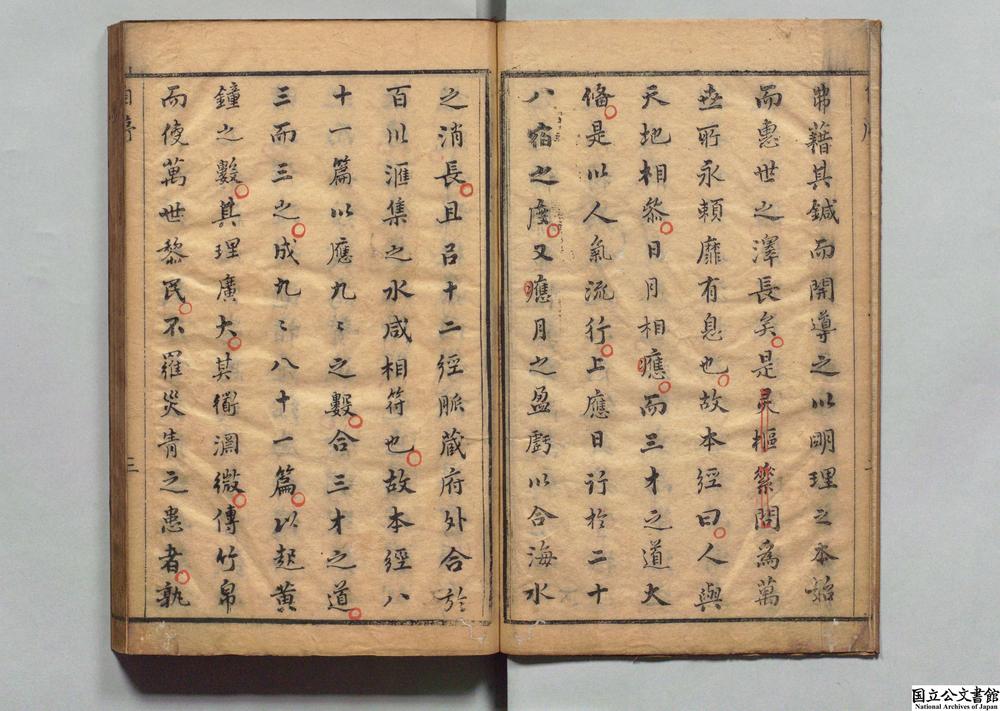 弗藉其鍼而開導之以明理之本始
而惠世之澤長矣是灵樞素問為萬
世所永頼靡有息也故本經曰人與
天地相參日月相應而三才之道大
俻是以人氣流行上應日行於二十
八宿之度又應月之盈虧以合海水
之消長且以十二經脈蔵府外合於
百川滙集之水咸相符也故本經八
十一篇以應九〻之數合三才之道
三而三之成九〻八十一篇以起黄
鐘之數其理廣大其衜淵微傳竹帛
而使萬世黎民不羅災眚之患者孰
自序
三
国立公文書館
National Archives of Japan